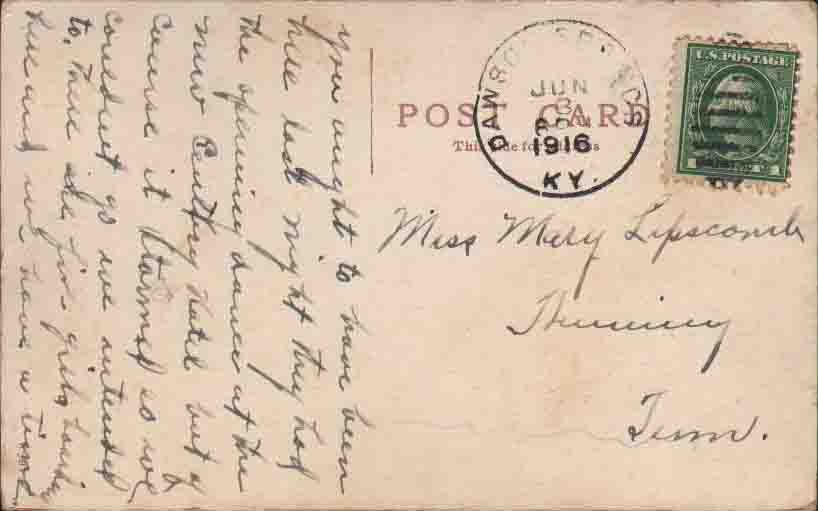 you ought to have been
here last night they had
the opening dance at the
new Century hotel but of
course it stormed so we
couldn't go we intended
to. There are five girls
here and we have a time.
POST CARD
This side for
DAWSON SPRINGS
JUN
8
1916
KY.
U.S. POSTAGE
Miss Mary Lipscomb
Tenn.